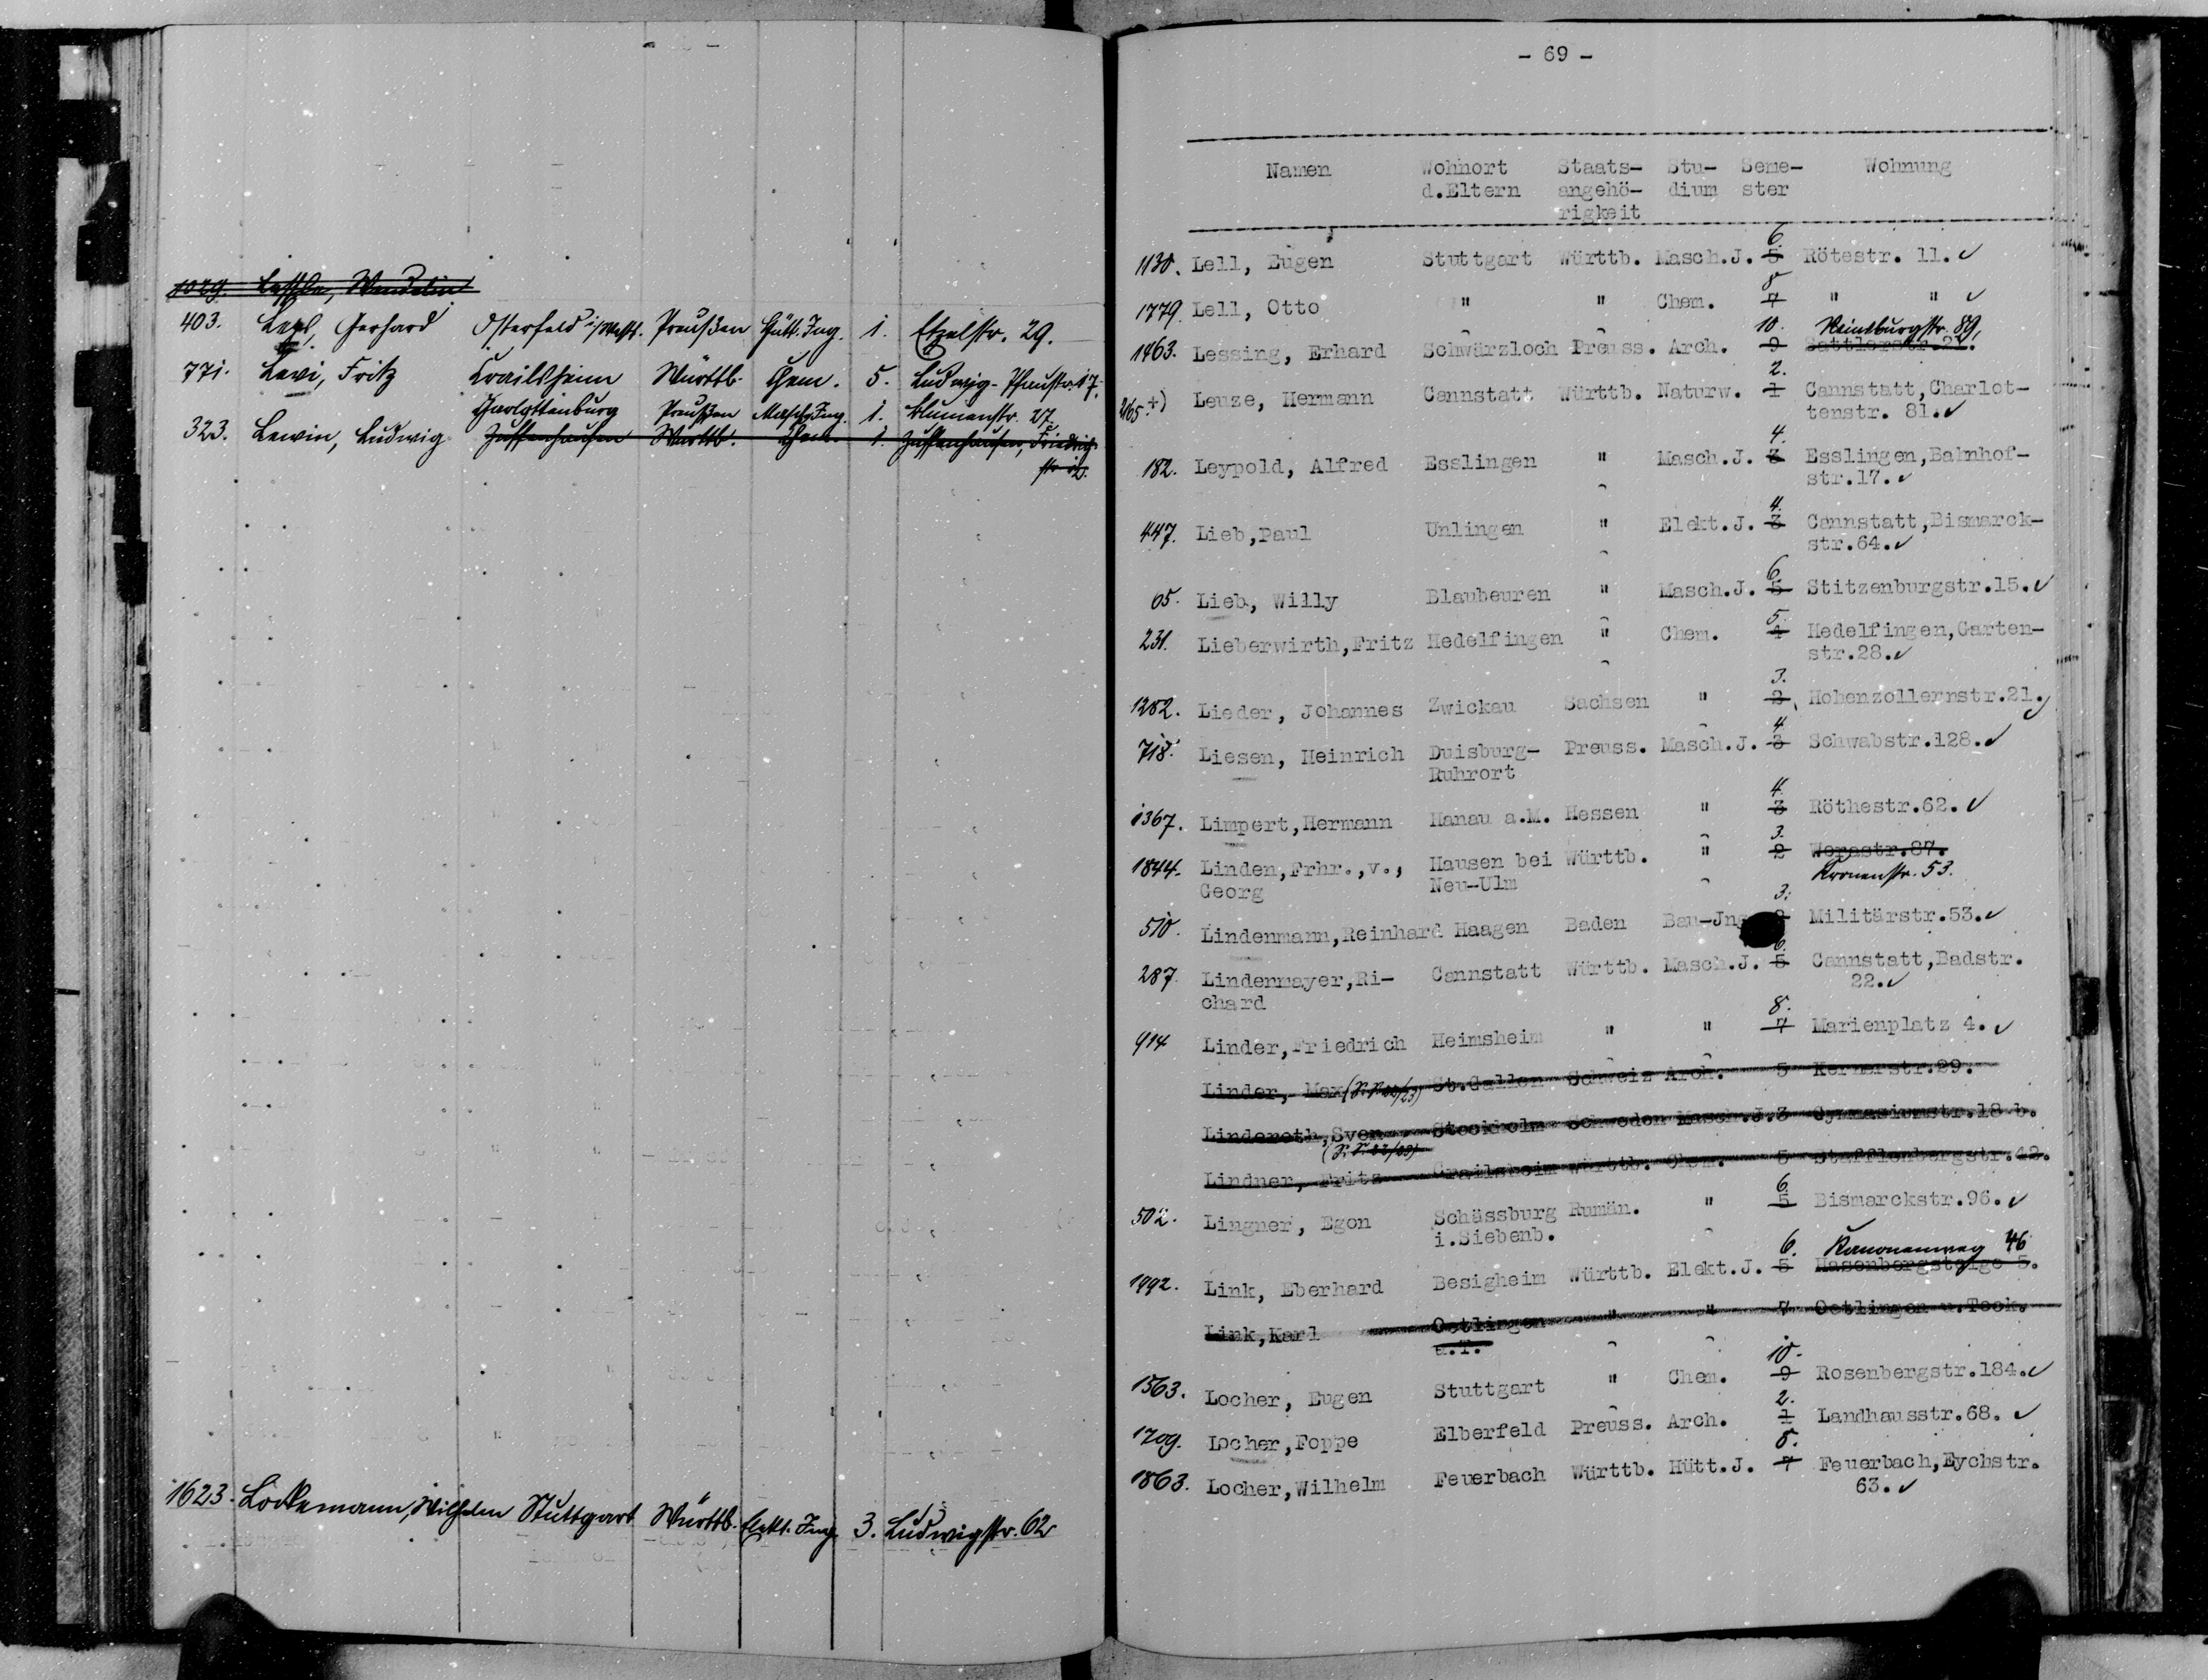 1029. Wendelin
403. Gerhard Osterfeld i/Westf. Preußen Hütt. Ing. 1. Etzelstr. 29.
771. Levi, Fritz Crailsheim Württb. Chem. 5. Ludwig-Pfaustr. 17.
Charlottenburg Preußen Masch. Ing. 1. Blumenstr. 27
323. Lewin, Ludwig Zuffenhausen Württb. Chem. 1. Zuffenhausen, Friedrich-
str.
1623. Löckemann, Wilhelm Stuttgart Württb. Elekt. Ing. 3. Ludwigstr. 62
- 69 -
Namen Wohnort Staats- Stu- Seme- Wohnung
d.Eltern angehö- dium ster
rigkeit
6.
1130. Lell, Eugen Stuttgart Württb. Masch.J. 5 Rötestr. 11. ✓
8
1779. Lell, Otto " " Chem. 7 " " ✓
10. 89,
1463. Lessing, Erhard Schwärzloch Preuss. Arch. 9 Sattlerstr.21.
2.
2165. +) Leuze, Hermann Cannstatt Württb. Naturw. 1 Cannstatt,Charlot-
tenstr. 81. ✓
4.
182. Leypold, Alfred Esslingen " Masch.J. 3 Esslingen,Bahnhof-
str.17. ✓
4.
447. Lieb,Paul Unlingen " Elekt.J. 3 Cannstatt,Bismarck-
str.64. ✓
6
65. Lieb, Willy Blaubeuren " Masch.J. 5 Stitzenburgstr.15. ✓
5.
231. Lieberwirth,Fritz Hedelfingen " Chem. 4 Hedelfingen,Garten-
str.28. ✓
3.
1282. Lieder, Johannes Zwickau Sachsen " 2 Hohenzollernstr.21. ✓
4
718. Liesen, Heinrich Duisburg- Preuss. Masch.J. 3 Schwabstr.128. ✓
Ruhrort
4.
1367. Limpert,Hermann Hanau a.M. Hessen " 3 Röthestr.62. ✓
3.
1844. Linden,Frhr.,v., Hausen bei Württb. " 2 Werastr.87.
Georg Neu-Ulm Kronenstr. 53.
3.
510. Lindenmann,Reinhard Haagen Baden Bau-Jng 2 Militärstr.53. ✓
6.
287. Lindenmayer,Ri- Cannstatt Württb. Masch.J. 5 Cannstatt,Badstr.
chard 22. ✓
8.
914 Linder,Friedrich Heimsheim " " 7 Marienplatz 4. ✓
Linder, Max St.Gallen Schweiz Arch. 5 Kernerstr.29.
Linderoth,Sven Stockholm Schweden Masch.J.3 Gymnasiumstr.18 b.
Lindner, Fritz Crailsheim Württb. Chem. 5 Stafflenbergstr.42.
6.
502. Lingner, Egon Schässburg Rumän. " 5 Bismarckstr.96. ✓
i.Siebenb.
6. Kanonenweg 46
1992. Link, Eberhard Besigheim Württb. Elekt.J. 5 Hasenbergsteige 5.
Link,Karl Oetlingen " " 7 Oetlingen u.Teck.
u.T.
10.
1563. Locher, Eugen Stuttgart " Chem. 9 Rosenbergstr.184. ✓
2.
1709. Locher,Foppe Elberfeld Preuss. Arch. 1 Landhausstr.68. ✓
8.
1863. Locher,Wilhelm Feuerbach Württb. Hütt.J. 7 Feuerbach,Eychstr.
63. ✓